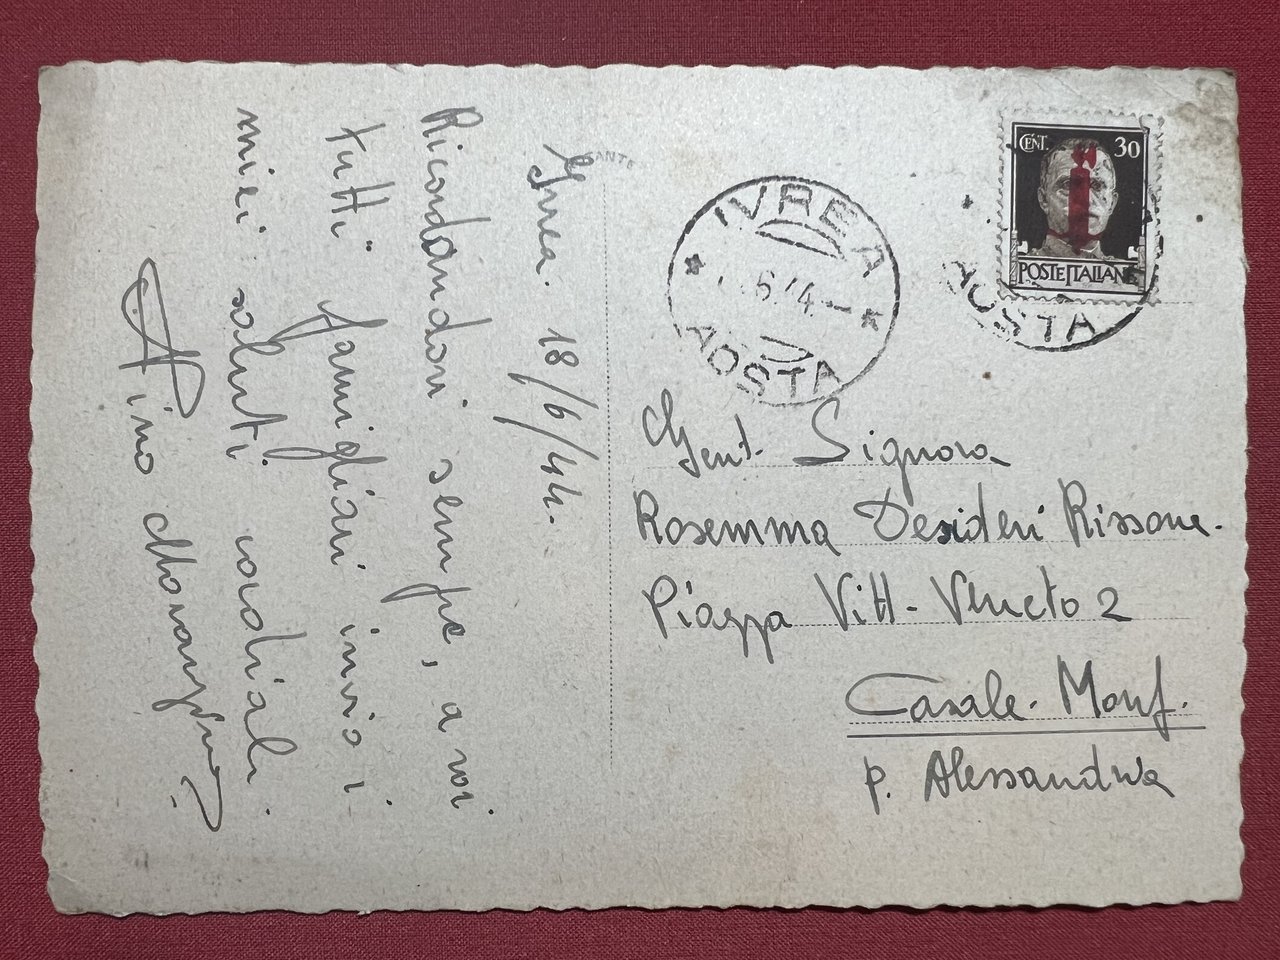 Ivrea. 18/6/44.
Ricordandovi sempre, a voi
tutti famigliari invio i
miei saluti cordiali.
Pino
IVREA
6.44
AOSTA
CENT. 30
POSTE ITALIANE
AOSTA
Gent. Signora
Rosemma Desideri Rissone.
Piazza Vitt. Veneto 2
Casale. Monf.
p. Alessandria